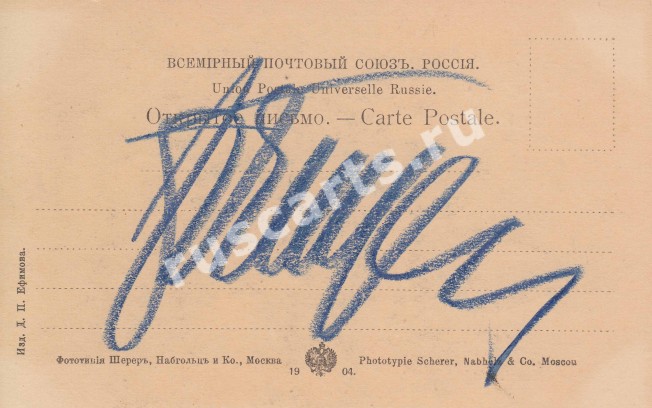 ВСЕМІРНЫЙ ПОЧТОВЫЙ СОЮЗЪ. РОССІЯ.
Union Postale Universelle Russie.
Открытое письмо. — Carte Postale.
ruscarts.ru
Изд. Д. П. Ефимова.
Фототипія Шереръ, Набгольцъ и Ко., Москва
Phototypie Scherer, Nabholz & Co. Moscou
19 04.